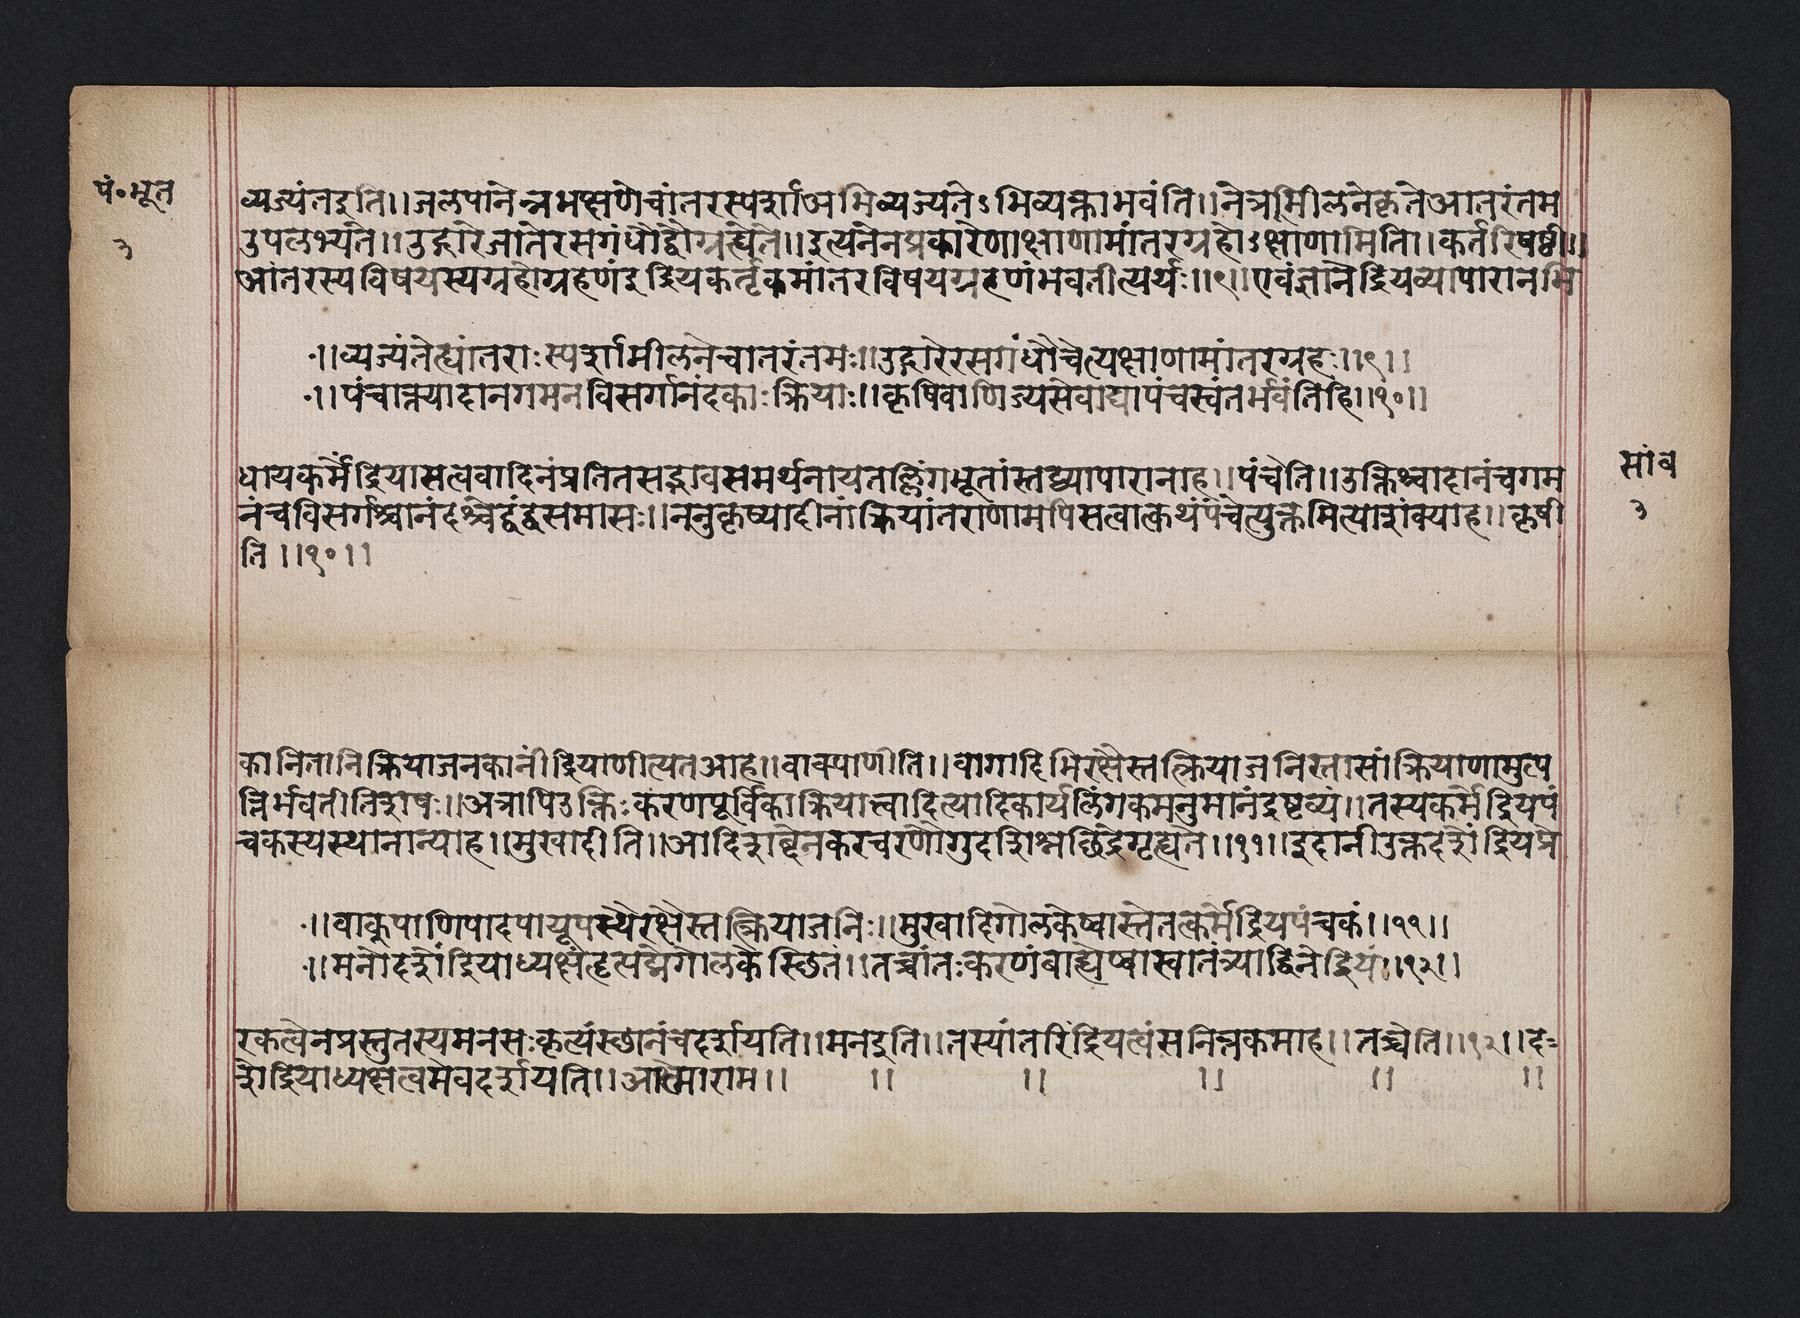 पं॰भूत
३
व्यज्यंतइति।।जलपानेन्नभक्षणेचांतरस्पर्शाअभिव्यज्यंतेऽभिव्यक्ताभवंति।।नेत्रमीलनेकृतेआंतरंतम
उपलभ्यंते।।उद्गारेजातेरसगंधौद्वौगृह्येते।।इत्यनेनप्रकारेणाक्षाणामांतरग्रहोऽक्षाणामिति।।कर्तरिषष्ठी।।
आंतरस्यविषयस्यग्रहोग्रहणंइंद्रियकर्तृकमांतरविषयग्रहणंभवतीत्यर्थः।।९।।एवंज्ञानेंद्रियव्यापारानभि
।।व्यज्यंतेह्यांतराःस्पर्शामीलनेचांतरंतमः।।उद्गारेरसगंधौचेत्यक्षाणामांतरग्रहः।।९।।
।।पंचोक्त्यादानगमनविसर्गानंदकाःक्रियाः।।कृषिवाणिज्यसेवाद्याःपंचस्वंतर्भवंतिहि।।१०।।
धायकर्मेंद्रियासत्ववादिनंप्रतितत्सद्भावसमर्थनायतल्लिंगभूतांस्तद्व्यापारानाह।।पंचेति।।उक्तिश्चादानंचगम
नंचविसर्गश्चानंदश्चेद्वंद्वसमासः।।ननुकृष्यादीनांक्रियांतराणामपिसत्वात्कथंपंचेत्युक्तमित्याशंक्याह।।कृषी
ति ।।१०।।
सांव
३
कानितानिक्रियाजनकानींद्रियाणीत्यतआह।।वाक्पाणीति।।वागादिभिरक्षैस्तत्क्रियाजनिस्तासांक्रियाणामुत्प
त्तिर्भवतीतिशेषः।।अत्रापिउक्तिःकरणपूर्विकाक्रियात्वादित्यादिकार्यलिंगकमनुमानंद्रष्टव्यं।।तस्यकर्मेंद्रियपं
चकस्यस्थानान्याह।।मुखादीति।।आदिशब्देनकरचरणौगुदशिश्नछिद्रेगृह्येते।।११।।इदानींउक्तदशेंद्रियप्रे
।।वाक्पाणिपादपायूपस्थैरक्षैस्तत्क्रियाजनिः।।मुखादिगोलकेष्वास्तेतत्कर्मेंद्रियपंचकं।।११।।
।।मनोदशेंद्रियाध्यक्षंहृत्पद्मेगोलकेस्थितं।।तच्चांतःकरणंबाह्येष्वास्वातंत्र्याद्विनेंद्रियं।।१२।।
रकत्वेनप्रस्तुतस्यमनसःकृत्यंस्थानंचदर्शयति।।मनइति।।तस्यांतरिंद्रियत्वंसनिमित्तकमाह।।तच्चेति।।१२।।द
शेंद्रियाध्यक्षत्वमेवदर्शयति।।आत्माराम।। ।। ।। ।। ।। ।।